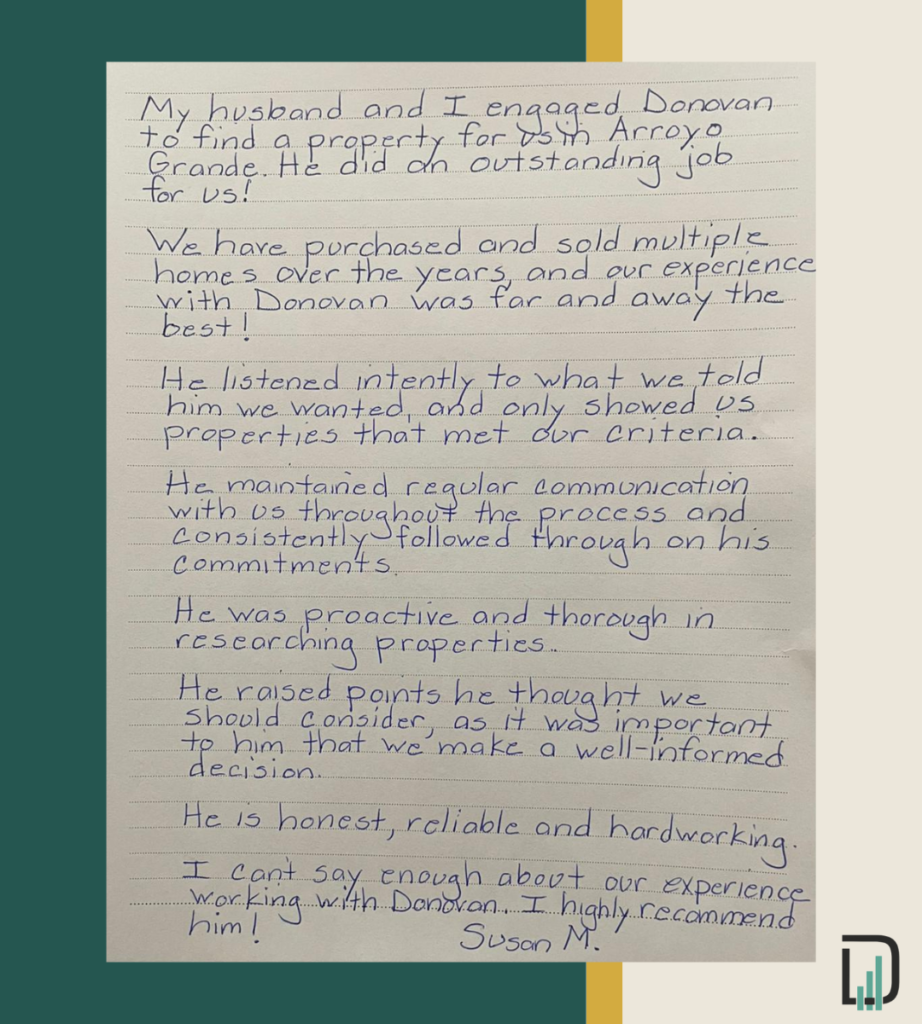 My husband and I engaged Donovan
to find a property for us in Arroyo
Grande. He did an outstanding job
for us!
We have purchased and sold multiple
homes over the years, and our experience
with Donovan was far and away the
best!
He listened intently to what we told
him we wanted, and only showed us
properties that met our criteria.
He maintained regular communication
with us throughout the process and
consistently followed through on his
commitments.
He was proactive and thorough in
researching properties.
He raised points he thought we
should consider, as it was important
to him that we make a well-informed
decision.
He is honest, reliable and hardworking.
I can't say enough about our experience
working with Donovan. I highly recommend
him!
Susan M.
D